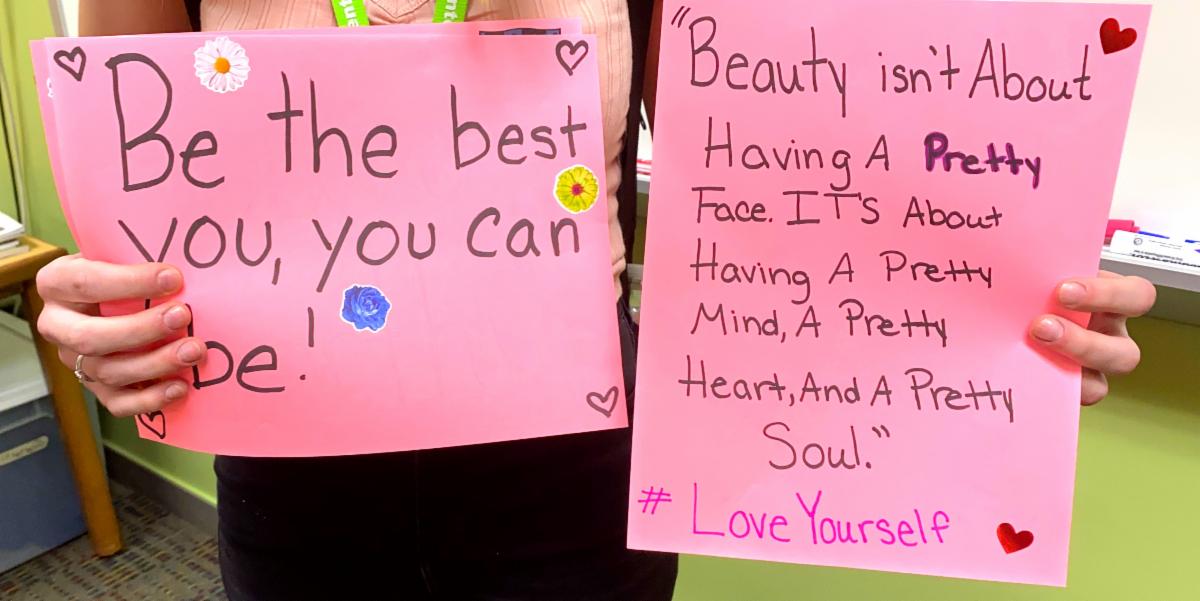 Be the best
you, you can
be!
"Beauty isn't About
Having A Pretty
Face. IT'S About
Having A Pretty
Mind, A Pretty
Heart, And A Pretty
Soul."
# Love Yourself